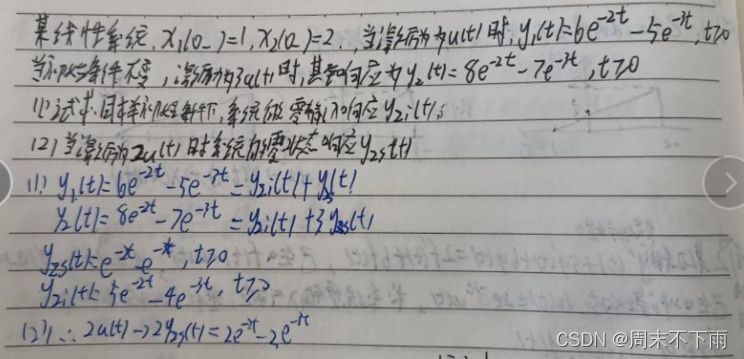 某线性系统, x₁(0_)=1, x₂(0_)=2, 当激励为u(t)时, y₁(t)=6e^{-2t}-5e^{-3t}, t≥0
当初始条件不变, 激励为3u(t)时, 其响应为y₂(t)=8e^{-2t}-7e^{-3t}, t≥0
(1) 试求同样初始条件下, 系统的零输入响应yzi(t);
(2) 当激励为2u(t)时系统的零状态响应yzs(t)
(1) y₁(t)=6e^{-2t}-5e^{-3t}=yzi(t)+yzs(t)
y₂(t)=8e^{-2t}-7e^{-3t}=yzi(t)+3yzs(t)
yzs(t)=e^{-2t}-e^{-3t}, t≥0
yzi(t)=5e^{-2t}-4e^{-3t}, t≥0
(2) ∴ 2u(t)→2yzs(t)=2e^{-2t}-2e^{-3t}
CSDN @周末不下雨